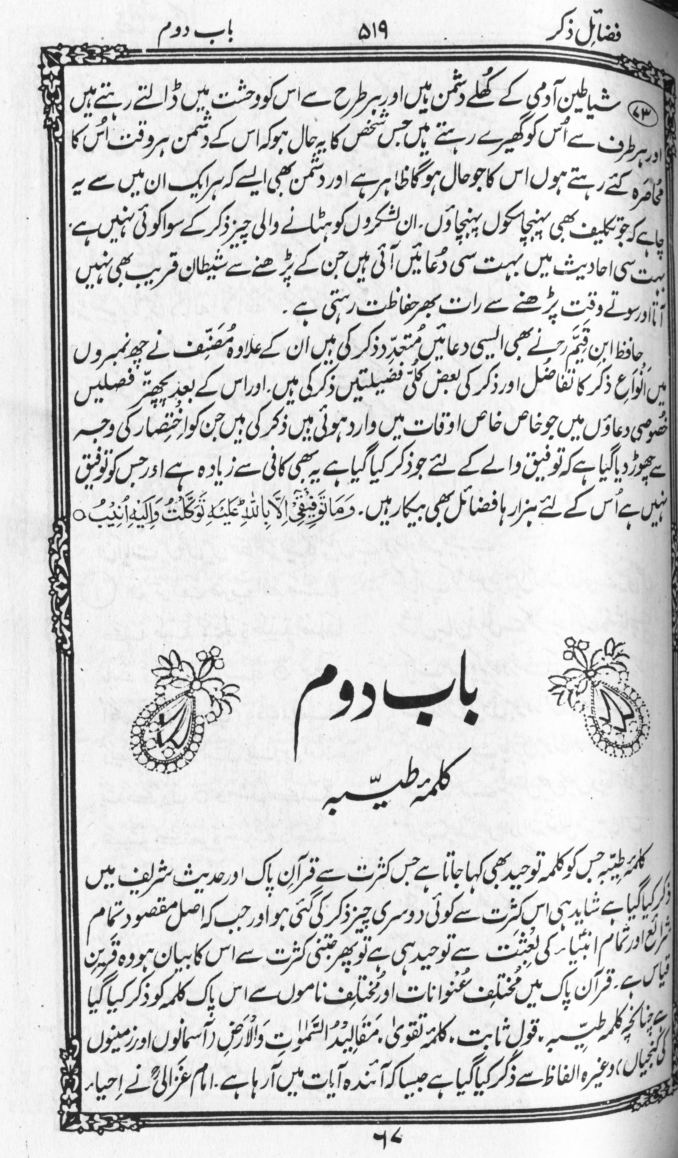 فضائل ذکر ۵۱۹ باب دوم
(۷۳) شیاطین آدمی کے کُھلے دشمن ہیں اور ہر طرح سے اس کو وحشت میں ڈالتے رہتے ہیں
اور ہر طرف سے اُس کو گھیرے رہتے ہیں جس شخص کا یہ حال ہو کہ اس کے دشمن ہر وقت اُس کا
محاصرہ کئے رہتے ہوں اس کا جو حال ہوگا ظاہر ہے اور دشمن بھی ایسے کہ ہر ایک ان میں سے یہ
چاہے کہ جو تکلیف بھی پہنچا سکوں پہنچاؤں۔ ان لشکروں کو ہٹانے والی چیز ذکر کے سوا کوئی نہیں ہے۔
بہت سی احادیث میں بہت سی دُعائیں آئی ہیں جن کے پڑھنے سے شیطان قریب بھی نہیں
آتا اور سوتے وقت پڑھنے سے رات بھر حفاظت رہتی ہے۔
حافظ ابنِ قیمؒ نے بھی ایسی دعائیں مُتعدِّد ذکر کی ہیں ان کے علاوہ مُصَنِّف نے چھ نمبروں
میں اَنْواعِ ذکر کا تفاضل اور ذکر کی بعض کُلّی فضیلتیں ذکر کی ہیں۔ اور اس کے بعد پچھتّر فصلیں
خُصوصی دعاؤں میں جو خاص خاص اوقات میں وارد ہوئی ہیں ذکر کی ہیں جن کو اختصار کی وجہ
سے چھوڑ دیا گیا ہے کہ توفیق والے کے لئے جو ذکر کیا گیا ہے یہ بھی کافی سے زیادہ ہے اور جس کو توفیق
نہیں ہے اُس کے لئے ہزارہا فضائل بھی بیکار ہیں۔ وَمَا تَوْفِيْقِیْ اِلَّا بِاللّٰهِ عَلَيْهِ تَوَكَّلْتُ وَاِلَيْهِ اُنِيْبُ○
باب دوم
کلمۂ طیّبہ
کلمۂ طیّبہ جس کو کلمۂ توحید بھی کہا جاتا ہے جس کثرت سے قرآنِ پاک اور حدیث شریف میں
ذکر کیا گیا ہے شاید ہی اس کثرت سے کوئی دوسری چیز ذکر کی گئی ہو اور جب کہ اصل مقصود تمام
شرائع اور تمام انبیاء کی بعثت سے توحید ہی ہے تو پھر جتنی کثرت سے اس کا بیان ہو وہ قرین
قیاس ہے۔ قرآن پاک میں مُختلِف عُنوانات اور مُختلِف ناموں سے اس پاک کلمہ کو ذکر کیا گیا
ہے چنانچہ کلمۂ طیّبہ، قول ثابت، کلمۂ تقویٰ، مَقَالِیْدُ السَّمٰوٰتِ وَالْاَرْضِ (آسمانوں اور زمینوں
کی کنجیاں) وغیرہ الفاظ سے ذکر کیا گیا ہے جیسا کہ آئندہ آیات میں آ رہا ہے۔ امام غزالیؒ نے اِحیاء